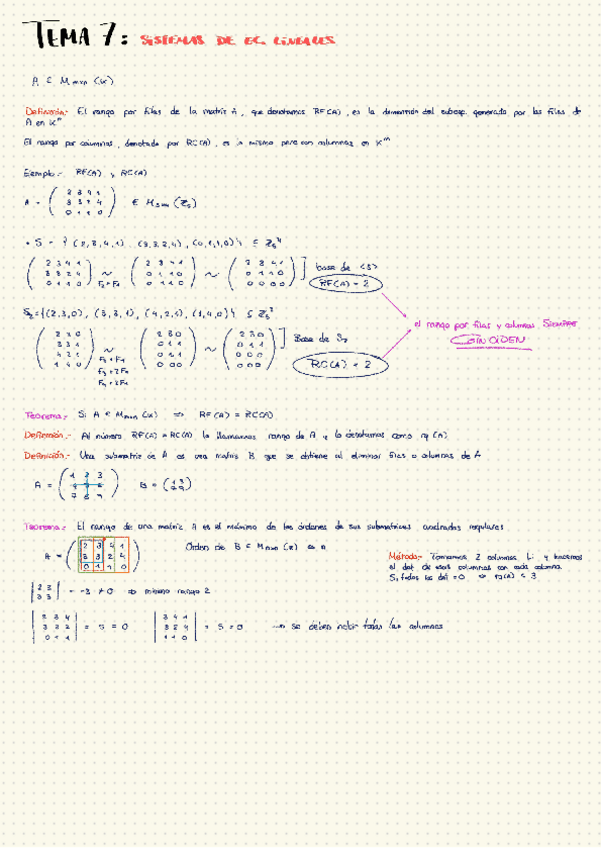 TEMA 7: SISTEMAS DE EC. LINEALES
A ∈ M mxn (K)
Definición:- El rango por filas de la matriz A, que denotamos RF(A), es la dimensión del subesp. generado por las filas de
A en Kⁿ
El rango por columnas, denotado por RC(A), es lo mismo pero con columnas en Kᵐ
Ejemplo:- RF(A) y RC(A)
2 3 4 1
A = 3 3 2 4 ∈ M3x4 (Z5)
0 1 1 0
• S = { (2,3,4,1), (3,3,2,4), (0,1,1,0)} ⊆ Z5⁴
2 3 4 1
3 3 2 4
0 1 1 0
~
0 1 1 0
0 0 0 0
base de <S>
RF(A) = 2
el rango por filas y columnas SIEMPRE
COINCIDEN
(2,3,0), (3,3,1), (4,2,1), (1,4,0)} ⊆ Z5³
2 3 0
3 3 1
4 2 1
1 4 0
~
2 3 0
0 1 1
0 1 1
0 0 0
~
2 3 0
0 1 1
0 0 0
0 0 0
Base de
RC(A) = 2
Teorema:- Si A ∈ Mmxn (K) ⇒ RF(A) = RC(A)
Definición:- Al número RF(A) = RC(A) lo llamamos rango de A y lo denotamos como rg (A)
Definición:- Una submatriz de A es una matriz B que se obtiene al eliminar filas o columnas de A
1 2 3
A = 4 5 6 B = (1 3
7 8 9 7 9)
Teorema:- El rango de una matriz A es el máximo de los órdenes de sus submatrices cuadradas regulares
2 3 4 1
A = 3 3 2 4
0 1 1 0
Orden de B ∈
Método:- Tomamos 2 columnas L.i y hacemos
el det. de esas columnas con cada columna.
Si todos los det = 0 ⇒ rg(A) < 3
|2 3
3 3| = -3 ≠ 0 ⇒ mínimo rango 2
0 1 1
= 5 = 0
3 4 1
3 2 4
1 1 0
= 5 = 0
se deben todas las columnas